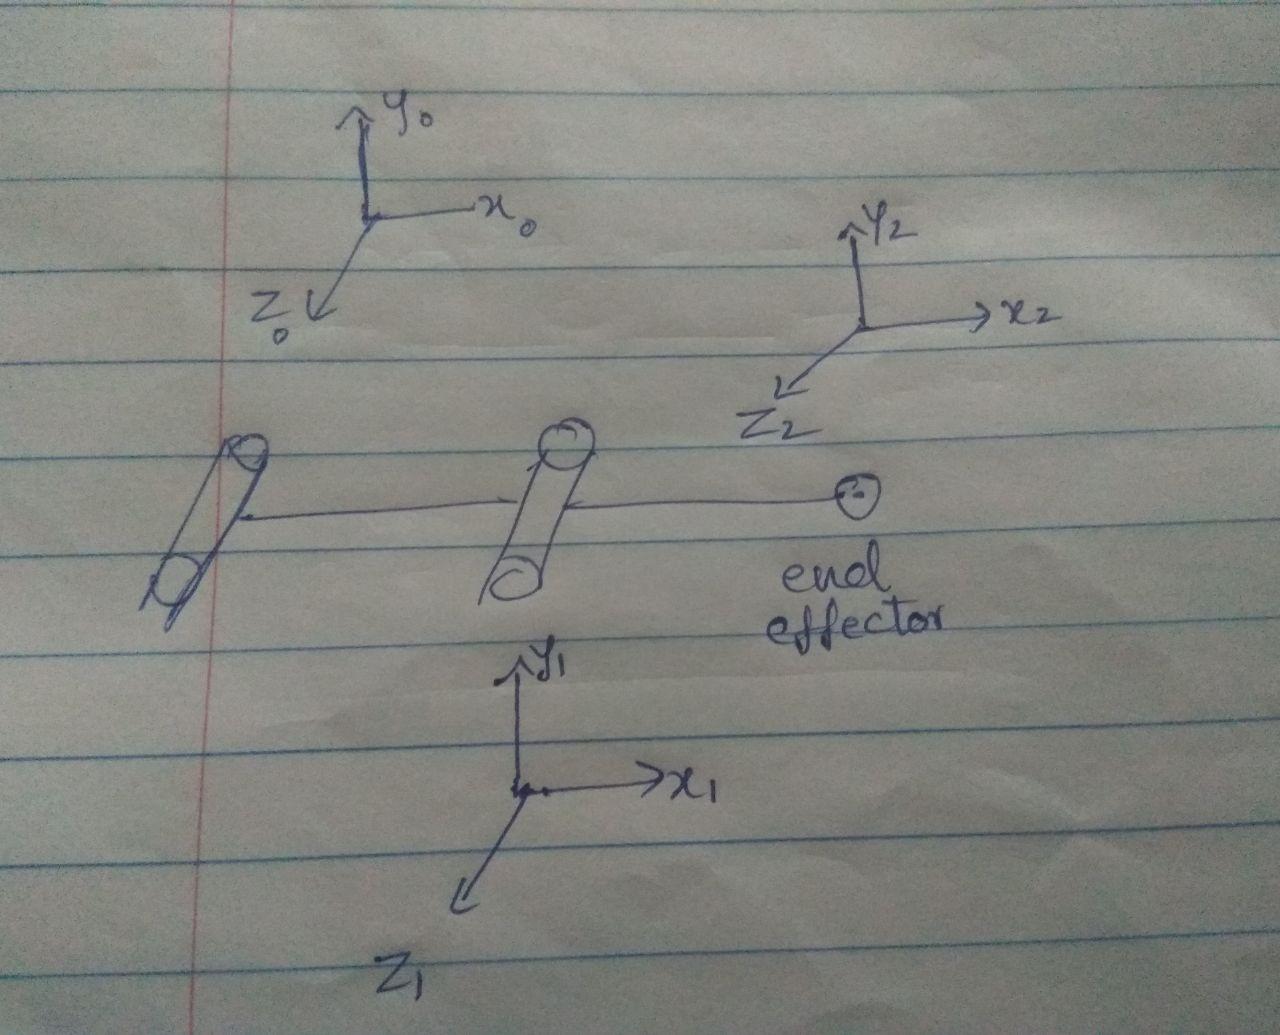 y₀
x₀
Z₀
Y₂
x₂
Z₂
end
effector
y₁
x₁
Z₁